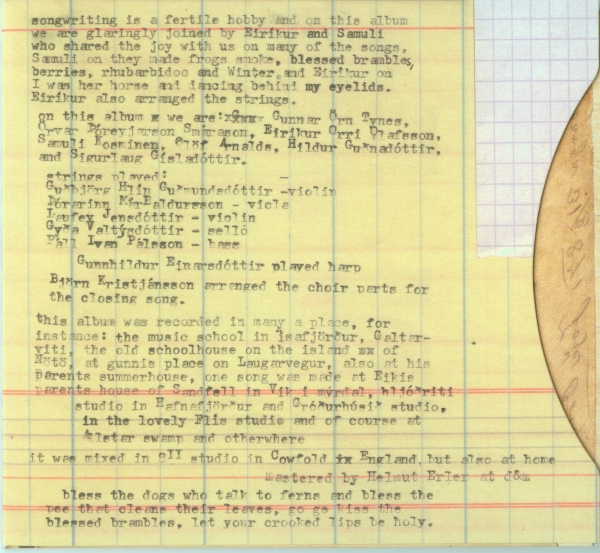 songwriting is a fertile hobby and on this album
we are glaringly joined by Eiríkur and Samuli
who shared the joy with us on many of the songs,
Samuli on they made frogs smoke, blessed brambles,
berries, rhubarbidoo and Winter, and Eiríkur on
I was her horse and dancing behind my eyelids.
Eiríkur also arranged the strings.
on this album x we are: Gunnar Örn Tynes,
Örvar Þóreyjarson Smárason, Eiríkur Orri Ólafsson,
Samuli Kosminen, Ólöf Arnalds, Hildur Guðnadóttir,
and Sigurlaug Gísladóttir.
strings played: -
Guðbjörg Hlín Guðmundsdóttir -violin
Þórarinn Már Baldursson - viola
Laufey Jensdóttir - violin
Gyða Valtýsdóttir - selló
Páll Ivan Pálsson - bass
Gunnhildur Einarsdóttir played harp
Björn Kristjánsson arranged the choir parts for
the closing song.
this album was recorded in many a place, for
instance: the music school in Ísafjörður, Galtar-
viti, the old schoolhouse on the island xx of
Nötö, at gunnis place on Laugarvegur, also at his
parents summerhouse, one song was made at Eikis
parents house of Sandfell in Vík í mýrdal, hljóðriti
studio in Hafnafjörður and Gróðurhúsið studio,
in the lovely Flís studio and of course at
Ælstar swamp and otherwhere
it was mixed in 2II studio in Cowfold xx England, but also at home
mastered by Helmut Erler at d&m
bless the dogs who talk to ferns and bless the
pee that cleans their leaves, go go kiss the
blessed brambles, let your crooked lips be holy.